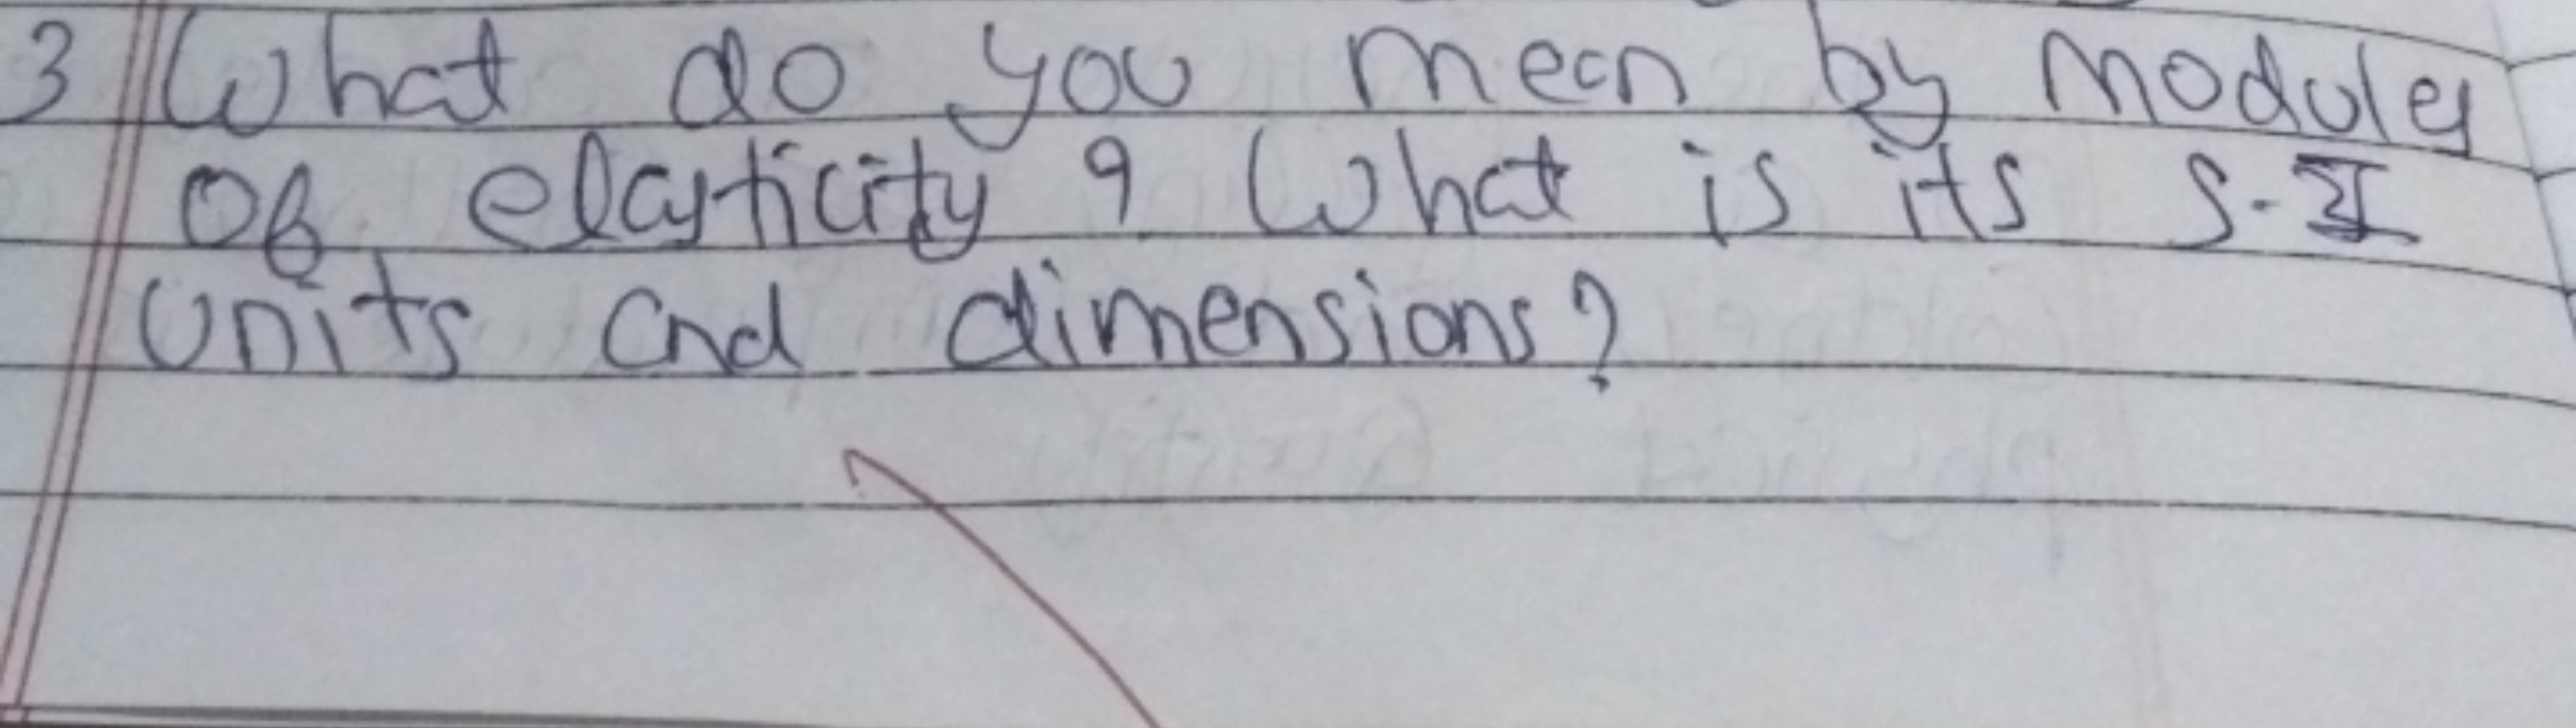 3 What do you mean by modules
of elasticity ? What is its S.I
units and dimensions?